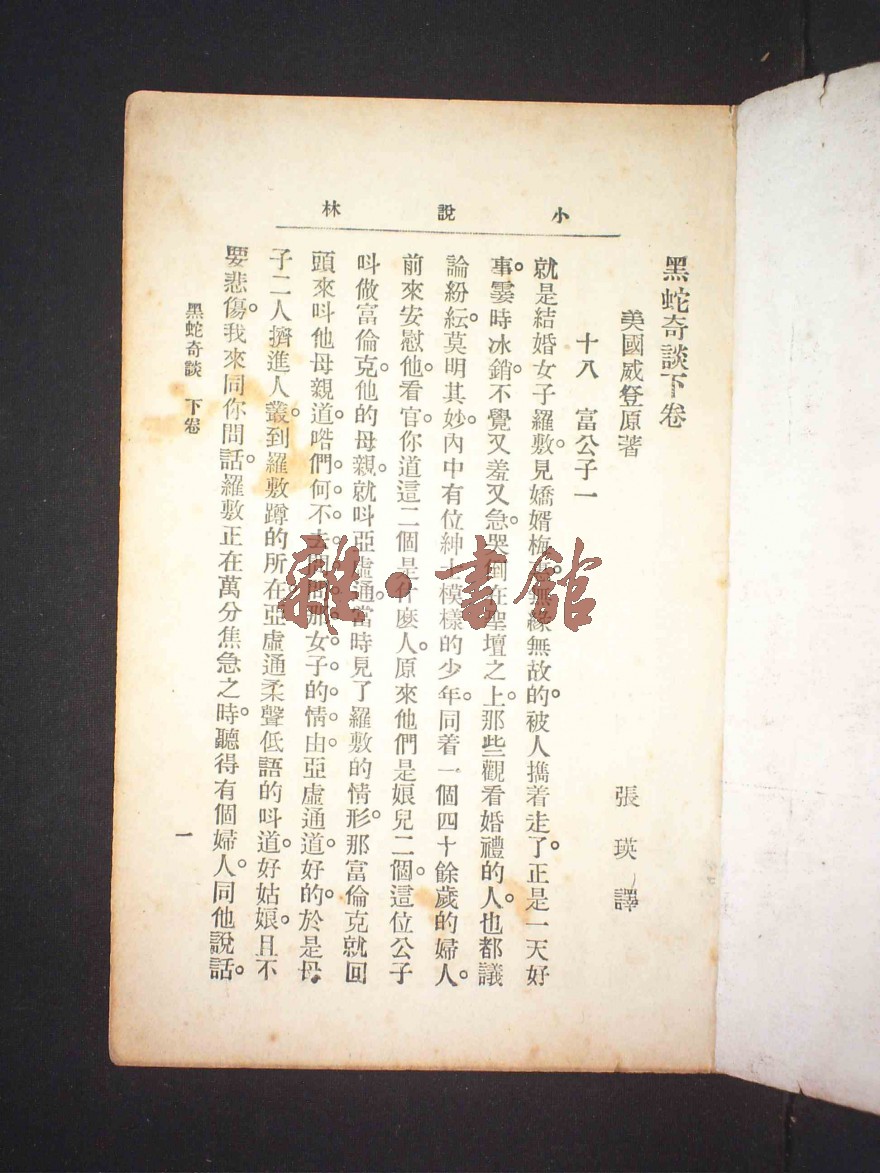 小說林
黑蛇奇談下卷
美國威登原著
張瑛譯
十八 富公子一
就是結婚女子羅敷。見嬌婿梅無緣無故的。被人攜着走了。正是一天好
事。霎時冰銷。不覺又羞又急。哭倒在聖壇之上。那些觀看婚禮的人。也都議
論紛紜。莫明其妙。內中有位紳士模樣的少年。同着一個四十餘歲的婦人。
前來安慰他。看官。你道這二個是什麼人。原來他們是娘兒二個。這位公子
叫做富倫克。他的母親。就叫亞虛通。當時見了羅敷的情形。那富倫克就回
頭來叫他母親道。喒們何不去問問那女子的情由。亞虛通道。好的。於是母
子二人擠進人叢。到羅敷蹲的所在。亞虛通柔聲低語的叫道。好姑娘。且不
要悲傷。我來同你問話。羅敷正在萬分焦急之時。聽得有個婦人。同他說話。
黑蛇奇談 下卷
一
雜·書館